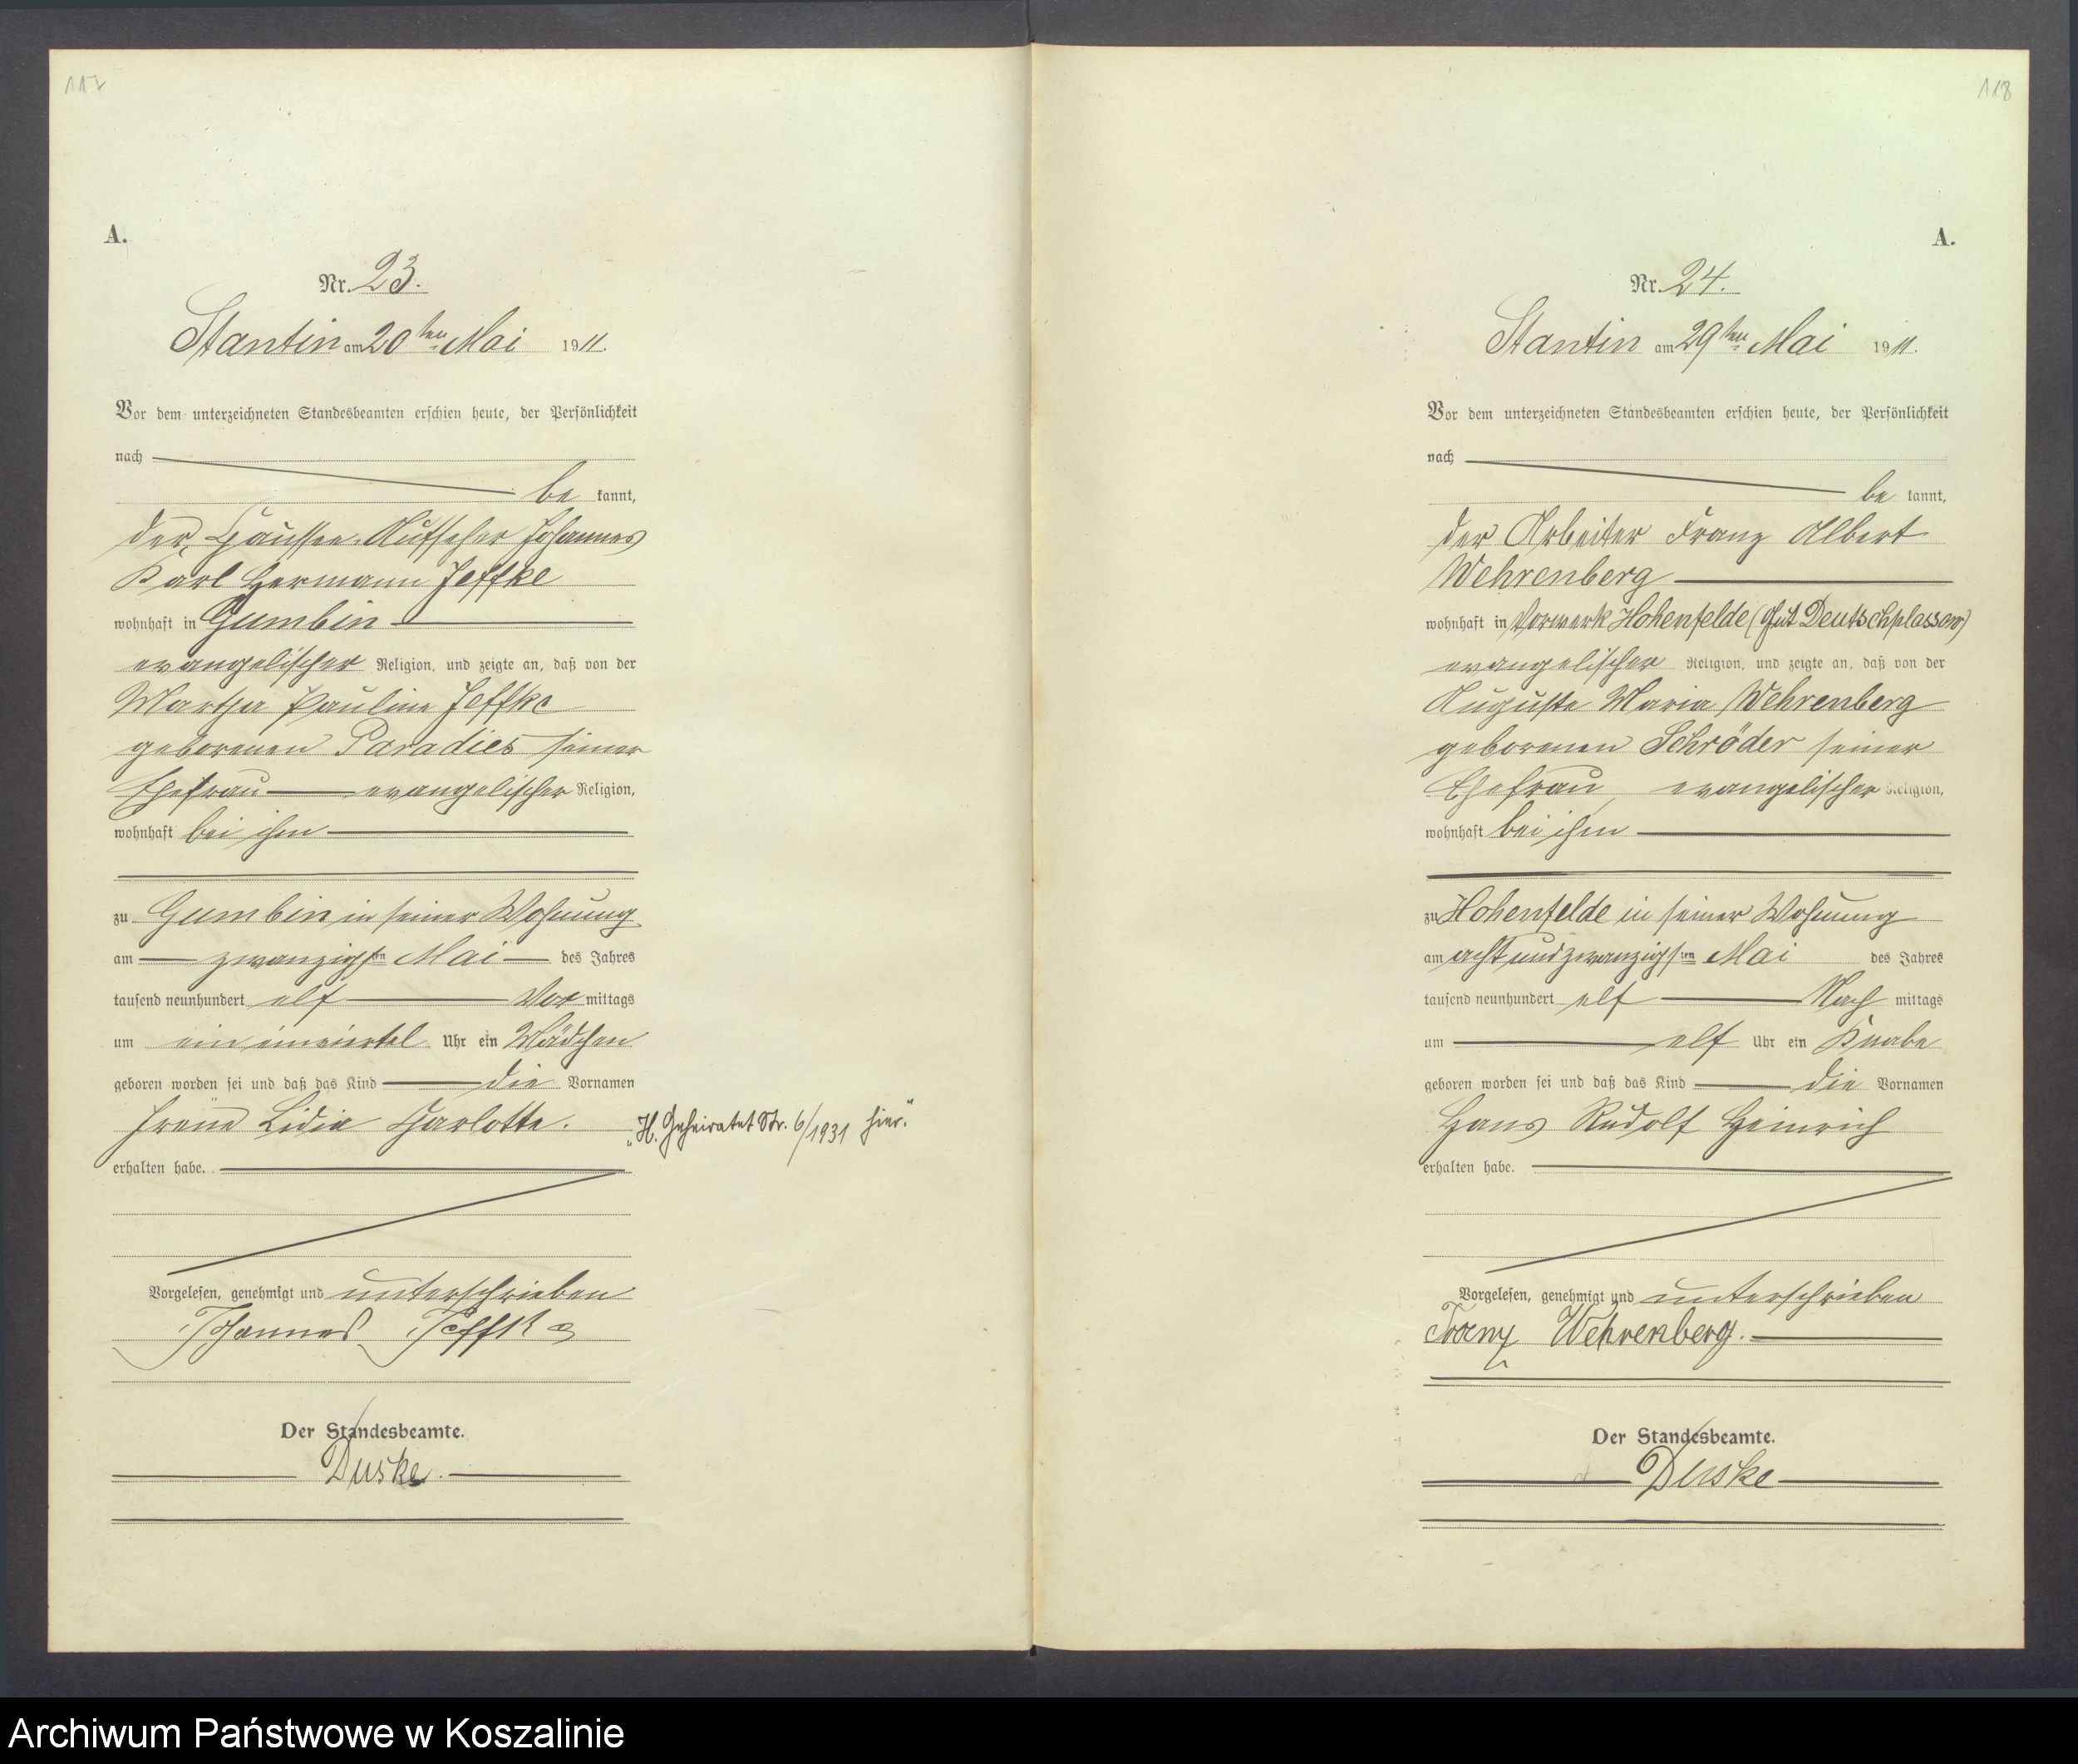 117
A.
Nr. 23.
Stantin am 20ten Mai 1911.
Vor dem unterzeichneten Standesbeamten erschien heute, der Persönlichkeit
nach
be kannt,
der Chaussee-Aufseher Johannes
Karl Hermann Jeffke
wohnhaft in Gumbin
evangelischer Religion, und zeigte an, daß von der
Martha Pauline Jeffke
geborenen Paradies seiner
Ehefrau evangelischer Religion,
wohnhaft bei ihm
zu Gumbin in seiner Wohnung
am zwanzigsten Mai des Jahres
tausend neunhundert elf Vor mittags
um ein einviertel Uhr ein Mädchen
geboren worden sei und daß das Kind die Vornamen
Irene Lidia Charlotte.
„H. Geheiratet Str. 6/1931 hier."
erhalten habe.
Vorgelesen, genehmigt und unterschrieben
Johannes Jeffke
Der Standesbeamte.
Duske.
118
A.
Nr. 24.
Stantin am 29ten Mai 1911.
Vor dem unterzeichneten Standesbeamten erschien heute, der Persönlichkeit
nach
be kannt,
der Arbeiter Franz Albert
Wehrenberg
wohnhaft in Vorwerk Hohenfelde (Gut Deutschplassow)
evangelischer Religion, und zeigte an, daß von der
Auguste Maria Wehrenberg
geborenen Schröder seiner
Ehefrau, evangelischer Religion,
wohnhaft bei ihm
zu Hohenfelde in seiner Wohnung
am achtundzwanzigsten Mai des Jahres
tausend neunhundert elf Nach mittags
um elf Uhr ein Knabe
geboren worden sei und daß das Kind die Vornamen
Hans Rudolf Heinrich
erhalten habe.
Vorgelesen, genehmigt und unterschrieben
Franz Wehrenberg.
Der Standesbeamte.
Duske
Archiwum Państwowe w Koszalinie